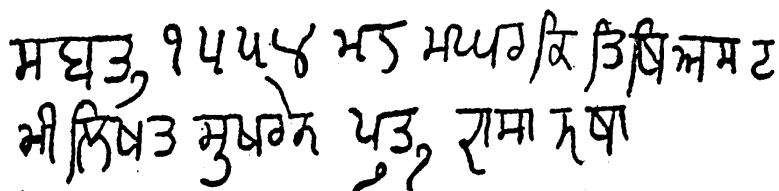 ਸਬਤੁ ੧੫੫੪ ਮਤ ਮਘਰ ਕਿ ਤਿਥਿ ਅਸਟ
ਮੀ ਲਿਖਤ ਮੁਖਰੇਨ ਪੁਤੁ ਰਾਮਾ